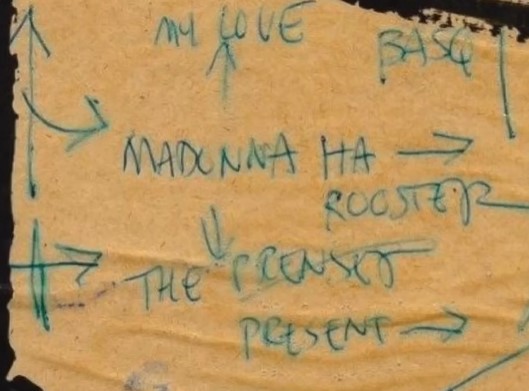 MY LOVE
BASQ
MADONNA HA
ROOSTER
THE PRENSET
PRESENT